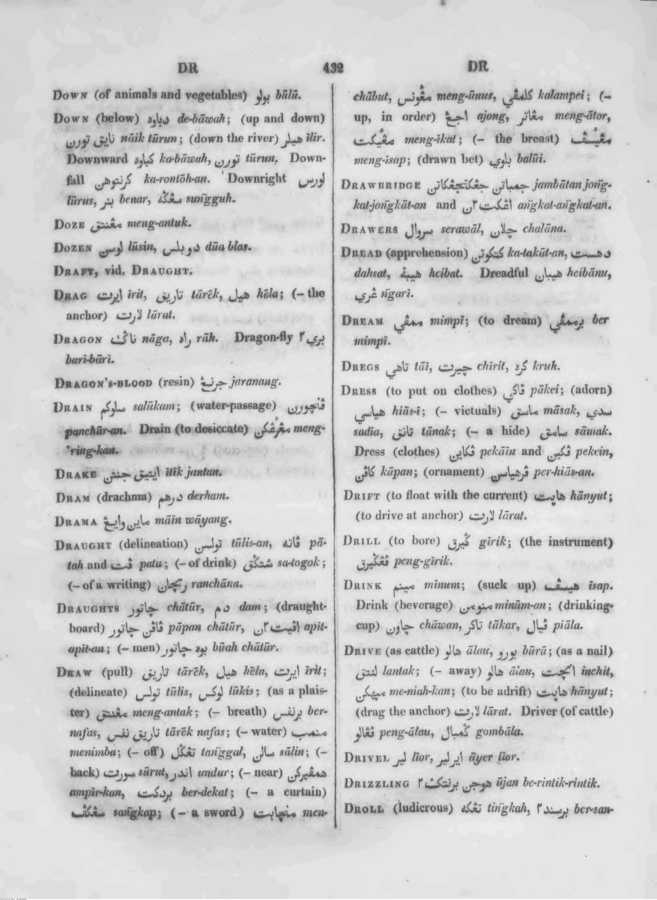 DR 432 DR
DOWN (of animals and vegetables) بولو būlū.
DOWN (below) دباوه de-bāwah; (up and down)
نايق تورن nāik tūrun; (down the river) هيلر īlir.
Downward كباوه ka-bāwah, تورن tūrun, Down-
fall كرنتوهن ka-rontōh-an. Downright لورس
lūrus, بنر benar, سڠڬه suñgguh.
DOZE مڠنتق meng-antuk.
DOZEN لوسن lūsin, دوبلس dūa blas.
DRAFT, vid. DRAUGHT.
DRAG ايرت īrit, تاريق tārēk, هيل hēla; (– the
anchor) لارت lārat.
DRAGON ناڬ nāga, راه rāh. Dragon-fly بري٢
bari-bāri.
DRAGON'S-BLOOD (resin) جرنڠ jaranang.
DRAIN سلوكم salūkum; (water-passage) ڤنچورن
panchūr-an. Drain (to desiccate) مڠرڠكن meng-
'ring-kan.
DRAKE ايتيق جنتن ītik jantan.
DRAM (drachma) درهم derham.
DRAMA ماين وايڠ māin wāyang.
DRAUGHT (delineation) تولسن tūlis-an, ڤاته pā-
tah and ڤت pata; (– of drink) ستڬق sa-togok;
(– of a writing) رنچان ranchāna.
DRAUGHTS چاتور chātūr, دم dam; (draught-
board) ڤاڤن چاتور pāpan chātūr, اڤيت٢ن apit-
apit-an; (– men) بوه چاتور būah chātūr.
DRAW (pull) تاريق tārēk, هيل hēla, ايرت īrit;
(delineate) تولس tūlis, لوكس lūkis; (as a plais-
ter) مڠنتق meng-antak; (– breath) برنفس ber-
nafas, تاريق نفس tārēk nafas; (– water) منمب
menimba; (– off) تڠڬل tañggal, سالن sālin; (–
back) سورت sūrut, اندر undur; (– near) همڤيركن
ampir-kan, بردكت ber-dekat; (– a curtain)
سڠكڤ sañgkap; (– a sword) منچابت men-
chābut, مڠونس meng-ūnus, كلمڤي kalampei; (–
up, in order) اجڠ ajong, مڠاتر meng-ātor,
مڠيكت meng-īkat; (– the breast) مڠيسڤ
meng-isap; (drawn bet) بلوي balūi.
DRAWBRIDGE جمباتن جڠكتجڠكاتن jambātan joñg-
kat-joñgkāt-an and اڠكت٢ن añgkat-añgkat-an.
DRAWERS سروال serawāl, چلان chalāna.
DREAD (apprehension) كتكوتن ka-takūt-an, دهست
dahsat, هيبة heibat. Dreadful هيبان heibānu,
ڠري ñgari.
DREAM ممڤي mimpī; (to dream) برممڤي ber
mimpī.
DREGS تاهي tāī, چيرت chīrit, كره kruh.
DRESS (to put on clothes) ڤاكي pākei; (adorn)
هياسي hiās-i; (– victuals) ماسق māsak, سدي
sadia, تانق tānak; (– a hide) سامق sāmak.
Dress (clothes) ڤكاين pekāin and ڤكين pekein,
كاڤن kāpan; (ornament) ڤرهياسن per-hiās-an.
DRIFT (to float with the current) هانيت hānyut;
(to drive at anchor) لارت lārat.
DRILL (to bore) ڬيرق gīrik; (the instrument)
ڤڠڬيرق peng-gīrik.
DRINK مينم minum; (suck up) هيسڤ īsap.
Drink (beverage) منومن minūm-an; (drinking-
cup) چاون chāwan, تاكر tākar, ڤيال piāla.
DRIVE (as cattle) هالو ālau, بورو būrū; (as a nail)
لنتق lantak; (– away) هالو ālau, انچت inchit,
ميهكن me-niah-kan; (to be adrift) هانيت hānyut;
(drag the anchor) لارت lārat. Driver (of cattle)
ڤڠالو peng-ālau, ڬمبال gombāla.
DRIVEL لير līor, اير لير āyer līor.
DRIZZLING هوجن برنتك٢ ūjan be-rintik-rintik.
DROLL (ludicrous) تڠكه tiñgkah, برسند٢ ber-san-